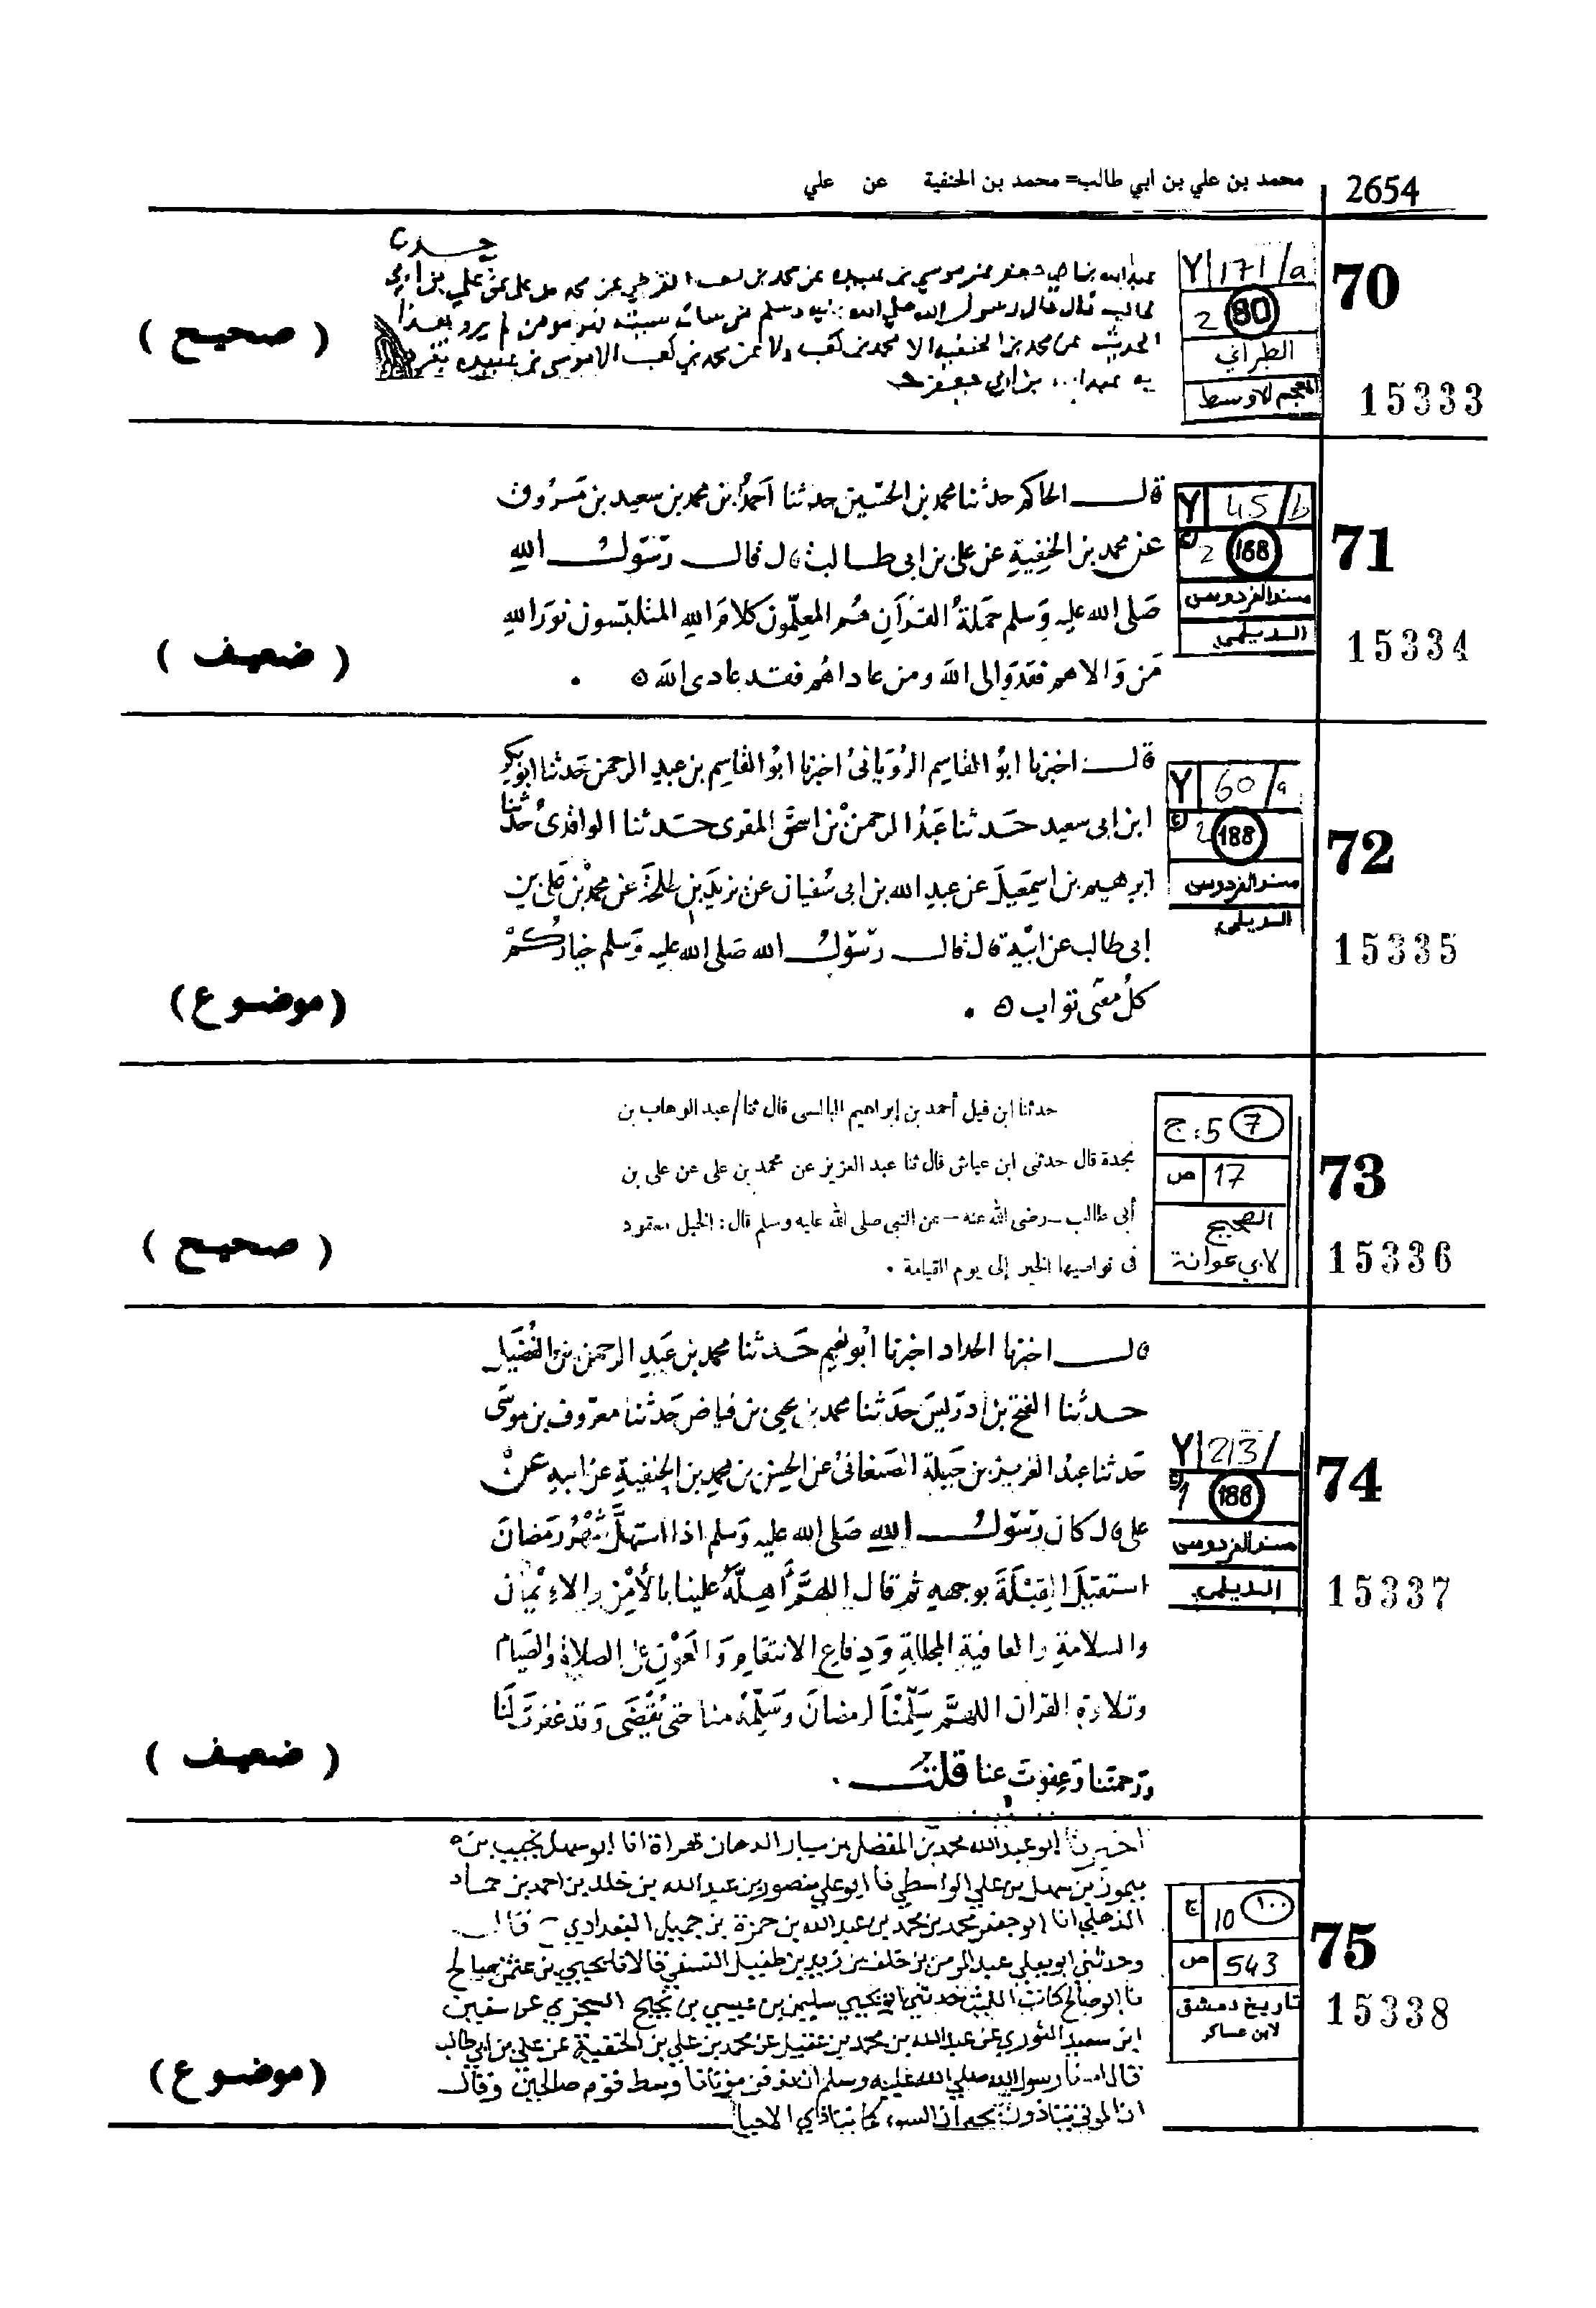 2654
محمد بن علي بن ابي طالب= محمد بن الحنفية عن علي
70
Y 171/a
2 80
الطبراني
المعجم الاوسط
15333
حدثنا
عبد الله بن ابي جعفر عن موسي بن عبيده عن محمد بن كعب القرظي عن محمد بن علي عن علي بن ابي
طالب قال قال رسول الله صلي الله عليه وسلم من ساته سيئته فهو مومن لم يرو هذا
الحديث عن محمد بن الحنفيه الا محمد بن كعب ولا عن محمد بن كعب الا موسي بن عبيده تفرد
به عبد الله بن ابي جعفر
( صحيح )
71
Y 45/b
2 188
مسند الفردوس
الديلمي
15334
قال الحاكم حدثنا محمد بن الحسين حدثنا أحمد بن محمد بن سعيد بن مسروق
عن محمد بن الحنفية عن علي بن ابي طالب قال قال رسول الله
صلى الله عليه وسلم حملة القرآن هم المعلمون كلام الله المتلبسون نور الله
من والاهم فقد والى الله ومن عاداهم فقد عادى الله ه .
( ضعيف )
72
Y 60/a
2 188
مسند الفردوس
الديلمي
15335
قال اخبرنا ابو القاسم الروياني اخبرنا ابو القاسم بن عبد الرحمن حدثنا ابو بكر
ابن ابي سعيد حدثنا عبد الرحمن بن اسحق المقرى حدثنا الواقدي حدثنا
ابرهيم بن اسمعيل عن عبد الله بن ابي سفيان عن يزيد بن طلحة عن محمد بن علي بن
ابي طالب عن ابيه قال قال رسول الله صلى الله عليه وسلم خياركم
كل مفتن تواب ه .
(موضوع)
73
7 5: ج
17 ص
الصحيح
لابي عوانة
15336
حدثنا ابن فيل أحمد بن إبراهيم البالسى قال ثنا/عبد الوهاب بن
نجدة قال حدثنى ابن عياش قال ثنا عبد العزيز عن محمد بن على عن على بن
أبى طالب -رضى الله عنه - عن النبي صلى الله عليه وسلم قال: الخيل معقود
فى نواصيها الخير إلى يوم القيامة .
( صحيح )
74
Y 213/
1 188
مسند الفردوس
الديلمي
15337
قال اخبرنا الحداد اخبرنا ابو نعيم حدثنا محمد بن عبد الرحمن بن الفضيل
حدثنا الفتح بن ادريس حدثنا محمد بن يحيى بن فياض حدثنا معروف بن موسى
حدثنا عبد العزيز بن جبيلة الصنعاني عن الحسن بن محمد بن الحنفية عن ابيه عن
علي قال كان رسول الله صلى الله عليه وسلم اذا استهل شهر رمضان
استقبل القبلة بوجهه ثم قال اللهم أهله علينا بالأمن والايمان
والسلامة والعافية المجللة ودفاع الاسقام والعون على الصلاة والصيام
وتلاوة القرآن اللهم سلمنا لرمضان وسلمه منا حتى ينقضى وقد غفرت لنا
ورحمتنا وعفوت عنا قلت .
( ضعيف )
75
١٠٠ 10 ج
543 ص
تاريخ دمشق
لابن عساكر
15338
اخبرنا ابو عبد الله محمد بن المفضل بن سيار الدهان بهراة انا ابو سهل نجيب بن
ميمون بن سهل بن علي الواسطي نا ابو علي منصور بن عبد الله بن خالد بن احمد بن حماد
الذهلي انا ابو جعفر محمد بن محمد بن عبد الله بن حمزة بن جميل البغدادي - قال
وحدثني ابو يعلي عبد المومن بن خلف بن زيد بن طفيل النسفي قالا نا يحيي بن عثمن بن صالح
نا ابو صالح كاتب الليث حدثني ابو يحيي سليمن بن عيسي بن نجيح السجزي عن سفين
ابن سعيد الثوري عن عبد الله بن محمد بن عقيل عن محمد بن علي بن الحنفية عن علي بن ابي طالب
قال امرنا رسول الله صلي الله عليه وسلم ان ندفن موتانا وسط قوم صالحين وقال
ان الموتي يتاذون بجيران السوء كما يتاذي الاحيا
(موضوع)